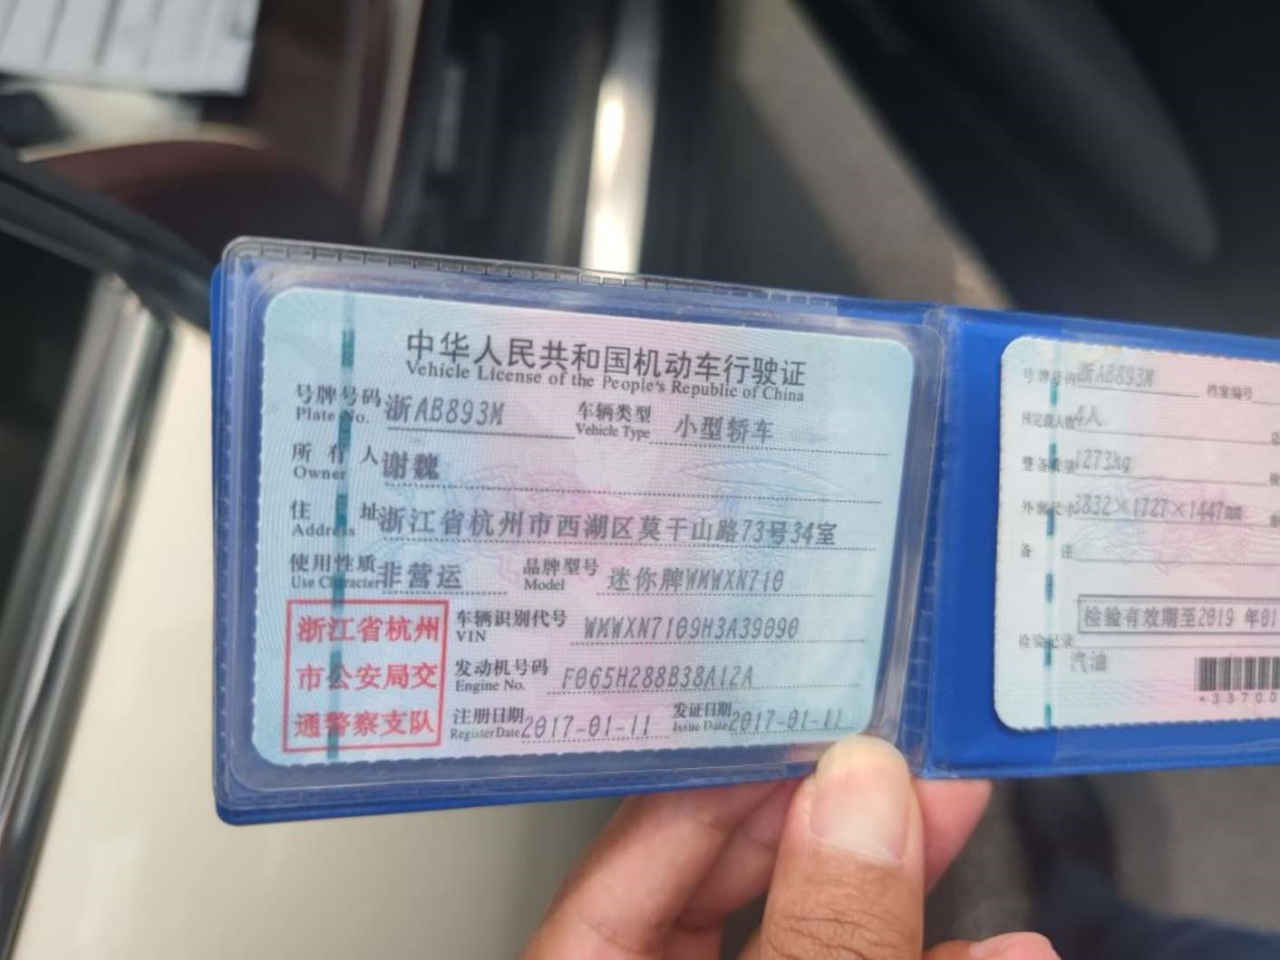 中华人民共和国机动车行驶证
Vehicle License of the People's Republic of China
号牌号码 浙AB893M 车辆类型 小型轿车
Plate No. Vehicle Type
所有人 谢魏
Owner
住址 浙江省杭州市西湖区莫干山路73号34室
Address
使用性质 非营运 品牌型号 迷你牌WMWXN710
Use Character Model
浙江省杭州
市公安局交
通警察支队
车辆识别代号 WMWXN7109H3A39090
VIN
发动机号码 F065H288B38A12A
Engine No.
注册日期 2017-01-11 发证日期 2017-01-11
Register Date Issue Date
号牌号码 浙AB893M 档案编号
核定载人数 4人
整备质量 1273kg
外廓尺寸 3832×1727×1447mm
备注
检验有效期至2019年01
检验记录
汽油
*33700